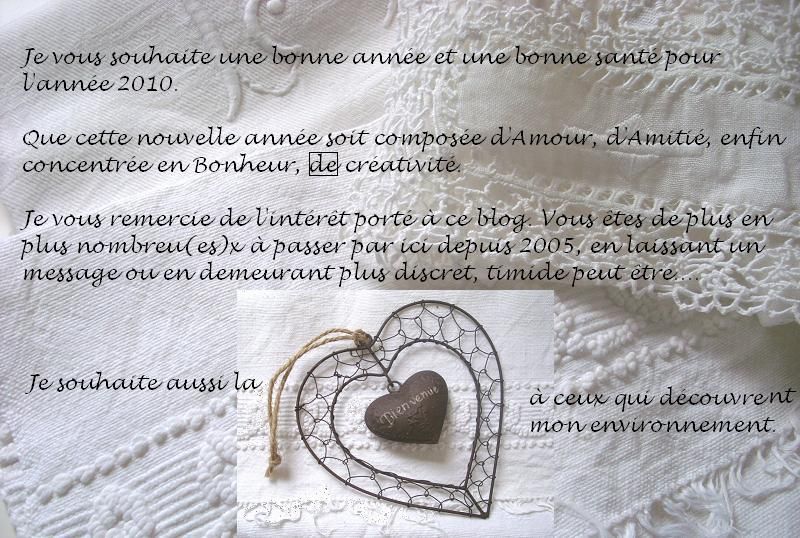 Je vous souhaite une bonne année et une bonne santé pour
l'année 2010.
Que cette nouvelle année soit composée d'Amour, d'Amitié, enfin
concentrée en Bonheur, de créativité.
Je vous remercie de l'intérêt porté à ce blog. Vous êtes de plus en
plus nombreu(es)x à passer par ici depuis 2005, en laissant un
message ou en demeurant plus discret, timide peut être....
Je souhaite aussi la
Bienvenue
à ceux qui découvrent
mon environnement.